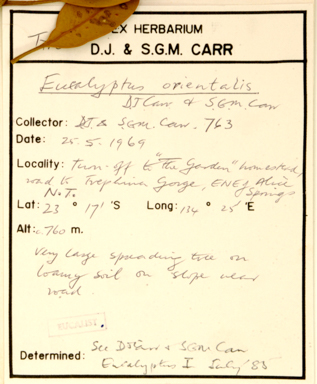 EX HERBARIUM
D.J. & S.G.M. CARR
Eucalyptus orientalis
DJCarr & S.G.M. Carr
Collector: D.J. & S.G.M. Carr. 763
Date: 25.5.1969
Locality: Turn-off to "The Garden" homestead,
road to Trephina Gorge, ENE of Alice Springs
N.T.
Lat: 23 ° 17' 'S Long: 134 ° 25' 'E
Alt: c.760 m.
Very large spreading tree on
loamy soil on slope near
road.
Determined: See DJCarr & SGM Carr
Eucalyptus I July '85